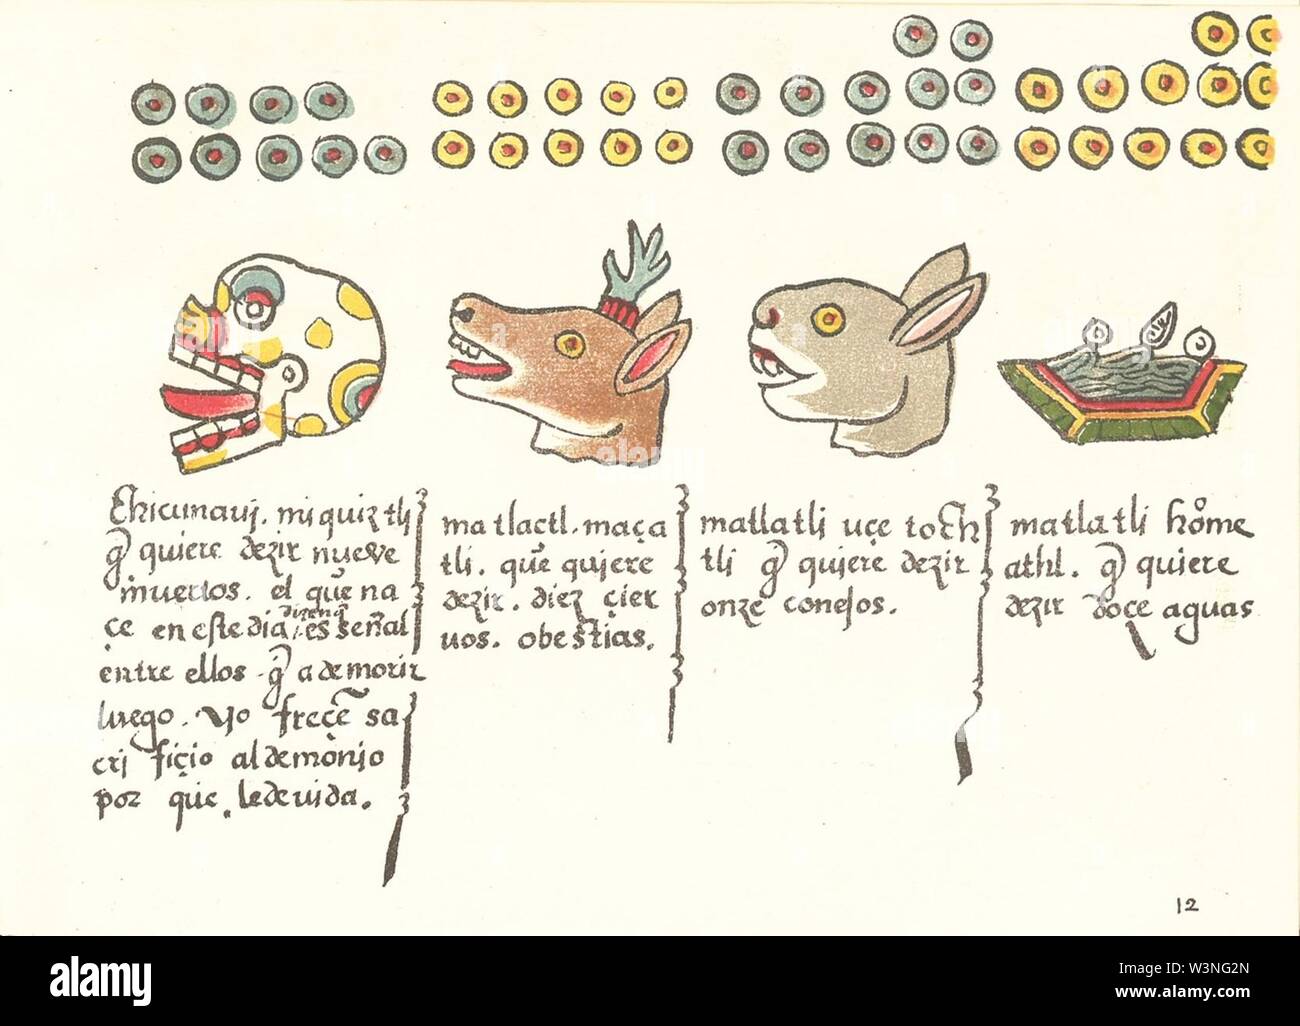 Chicunavi. miquiztli
q̃ quiere dezir nueve
muertos. el que na
çe en este dia dizen q̃ es señal
entre ellos q̃ a de morir
luego. Yo freçẽ sa
crifiçio al demonio
por que. le de vida.
matlactl. maça
tli. que quiere
dezir. diez çier
vos. o bestias.
matlatli uçe toch
tli q̃ quiere dezir
onze conejos.
matlatli home
athl. q̃ quiere
dezir doçe aguas
12
alamy
Image ID: W3NG2N
www.alamy.com